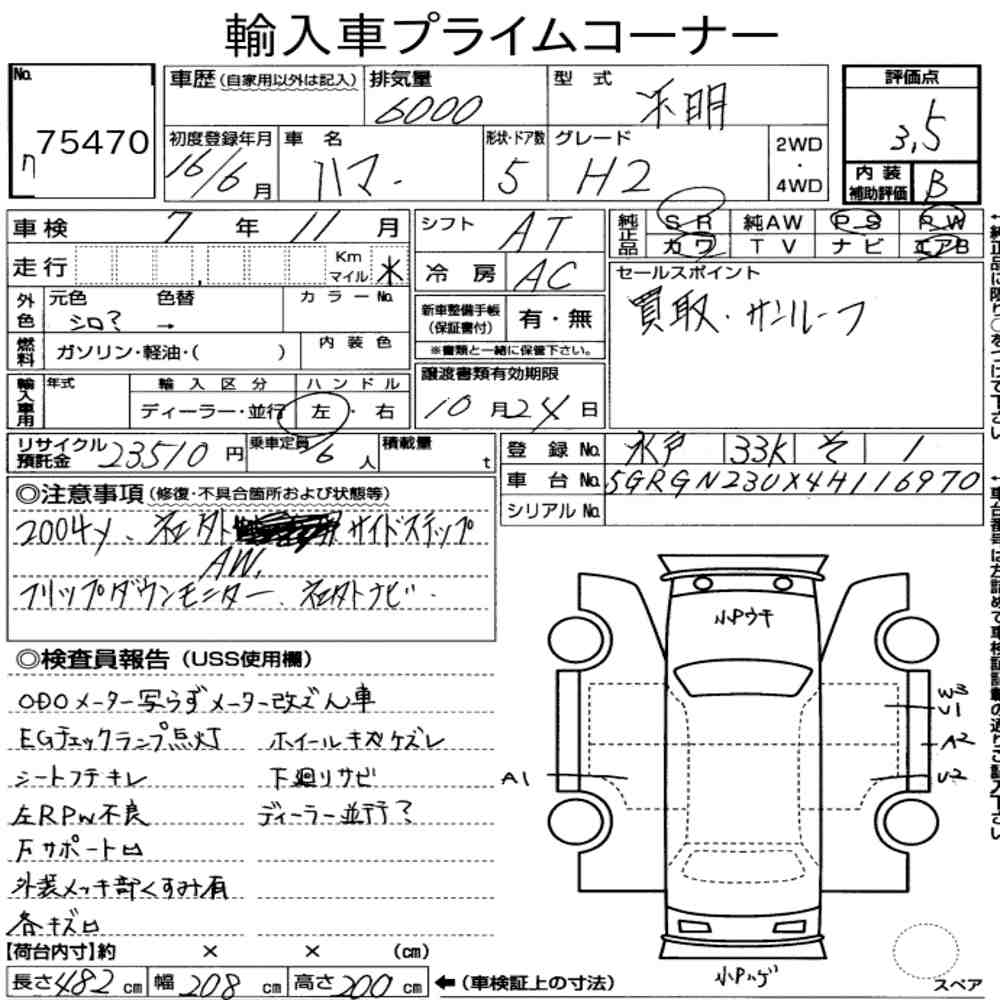 輸入車プライムコーナー
No. 75470
車歴(自家用以外は記入) 排気量 6000 型式 不明
初度登録年月 16/6月 車名 ハマー 形状・ドア数 5 グレード H2 2WD・4WD
評価点 3.5
内装補助評価 B
車検 7年 11月
走行 Km マイル 米
外色 元色 シロ? 色替 → カラーNo.
燃料 ガソリン・軽油・( ) 内装色
輸入車用 年式 輸入区分 ディーラー・並行 ハンドル 左・右
シフト AT
冷房 AC
新車整備手帳(保証書付) 有・無
※書類と一緒に保管下さい。
譲渡書類有効期限
10月24日
純正品 SR 純AW PS PW
カワ TV ナビ エアB
セールスポイント
買取・サンルーフ
リサイクル預託金 23510円 乗車定員 6人 積載量 t
登録No. 水戸 33K そ 1
車台No. 5GRGN23UX4H116970
シリアルNo.
◎注意事項(修復・不具合箇所および状態等)
2004y、社外 サイドステップ
AW、
フリップダウンモニター、社外ナビ.
◎検査員報告(USS使用欄)
ODOメーター写らずメーター改ざん車
EGチェックランプ点灯 ホイールキズケズレ
シートフチキレ 下廻りサビ
左RPW不良 ディーラー並行?
Fサポート凹
外装メッキ部くすみ有
各キズ凹
【荷台内寸】約 × × (cm)
長さ 482cm 幅 208cm 高さ 200cm ←(車検証上の寸法)
小Pウキ
W3
U1
A2
U2
A1
小Pハゲ
スペア
←純正品に限り○をつけて下さい